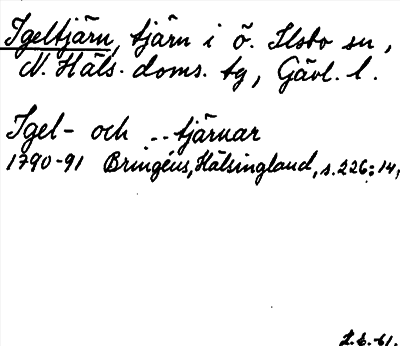 Igeltjärn, tjärn i ö. Ilsbo sn,
N. Häls. doms. tg, Gävl. l.
Igel- och ..tjärnar
1790-91 Bringéus, Hälsingland, s.226; 14,